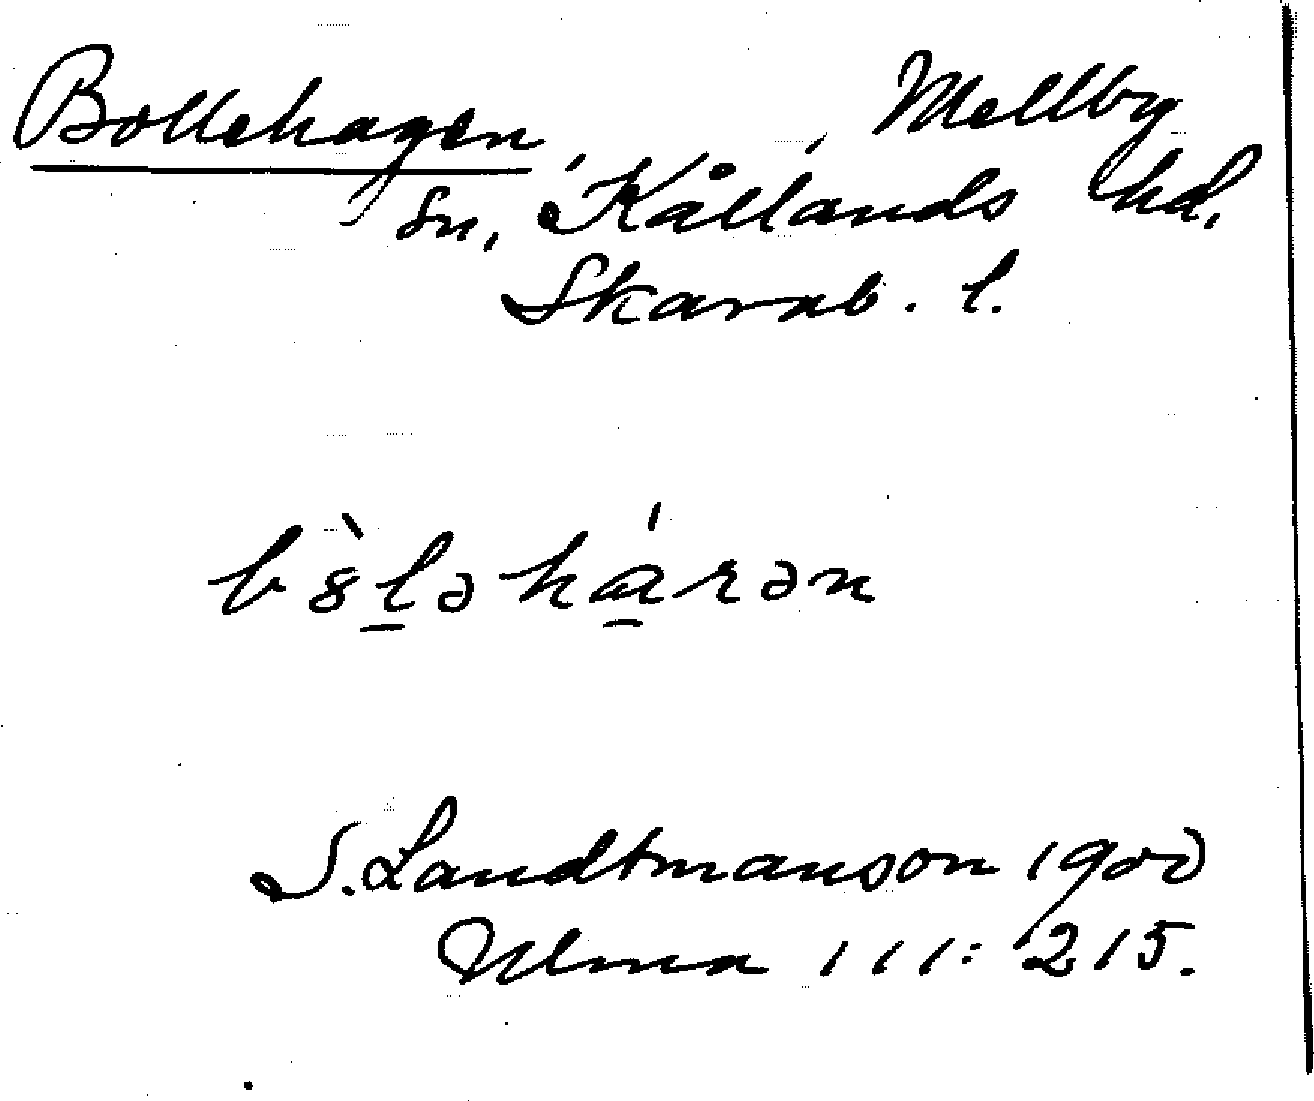 Bollehagen, Mellby
sn, Kållands hd,
Skarab. l.
bòḻəhá̱rən
S. Landtmanson 1900
Ulma 111: 215.